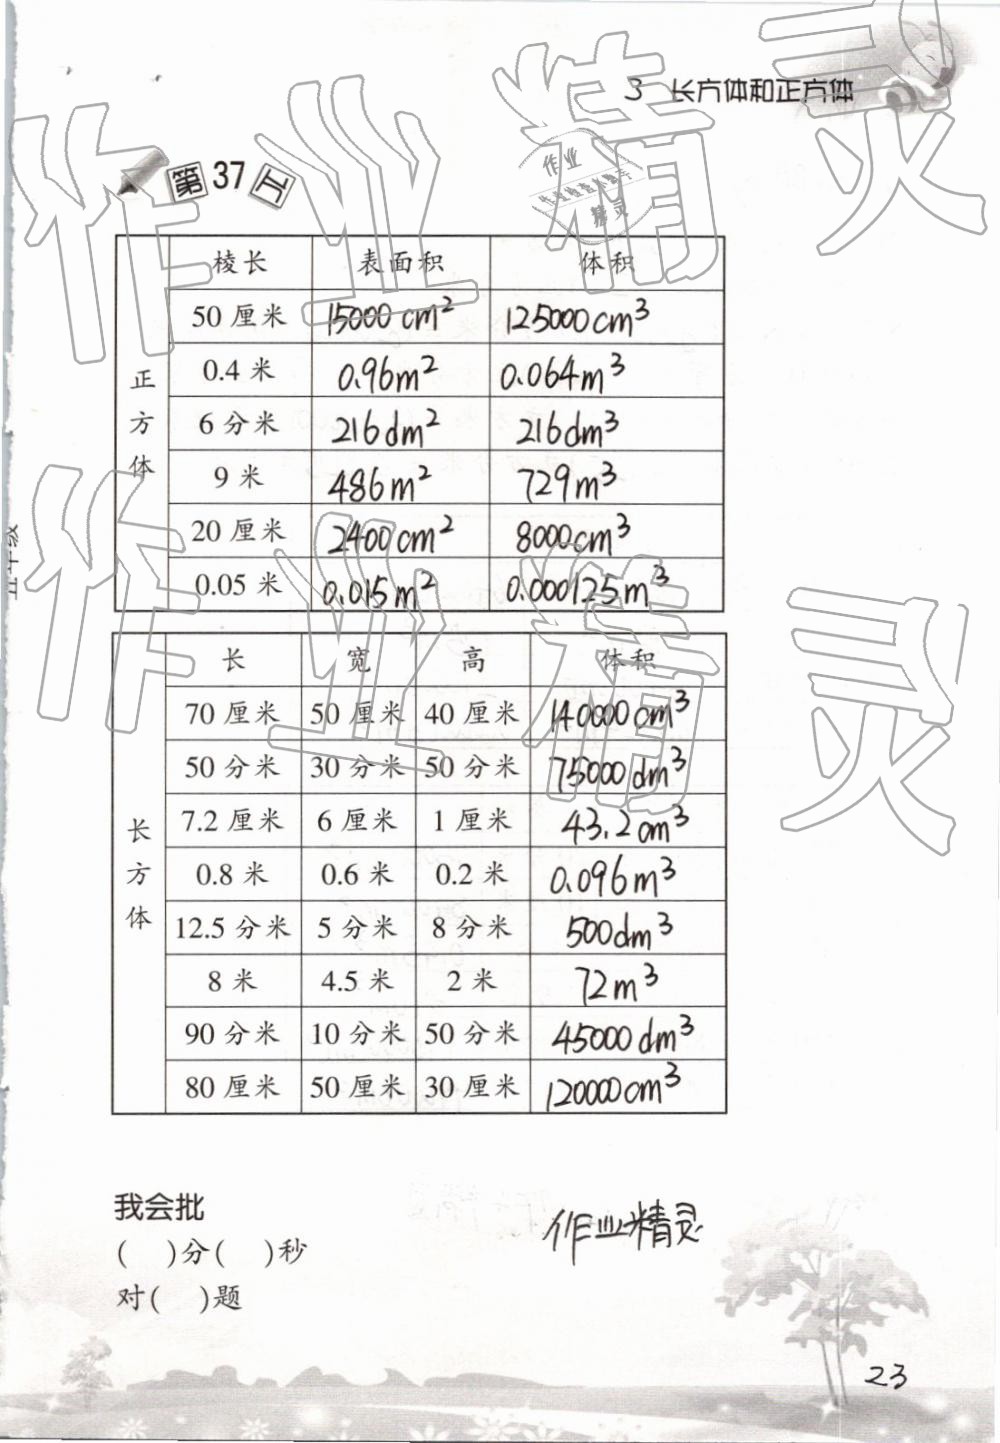 3 长方体和正方体
第37天
正方体 棱长 表面积 体积
50厘米 15000cm² 125000cm³
0.4米 0.96m² 0.064m³
6分米 216dm² 216dm³
9米 486m² 729m³
20厘米 2400cm² 8000cm³
0.05米 0.015m² 0.000125m³
长方体 长 宽 高 体积
70厘米 50厘米 40厘米 140000cm³
50分米 30分米 50分米 75000dm³
7.2厘米 6厘米 1厘米 43.2cm³
0.8米 0.6米 0.2米 0.096m³
12.5分米 5分米 8分米 500dm³
8米 4.5米 2米 72m³
90分米 10分米 50分米 45000dm³
80厘米 50厘米 30厘米 120000cm³
我会批
( )分( )秒
对( )题
作业精灵
23
作业精灵
作业精灵
作业
精灵